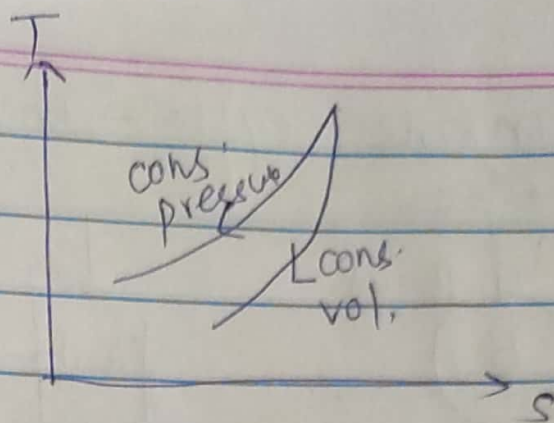 T
cons.
pressure
cons.
vol.
S